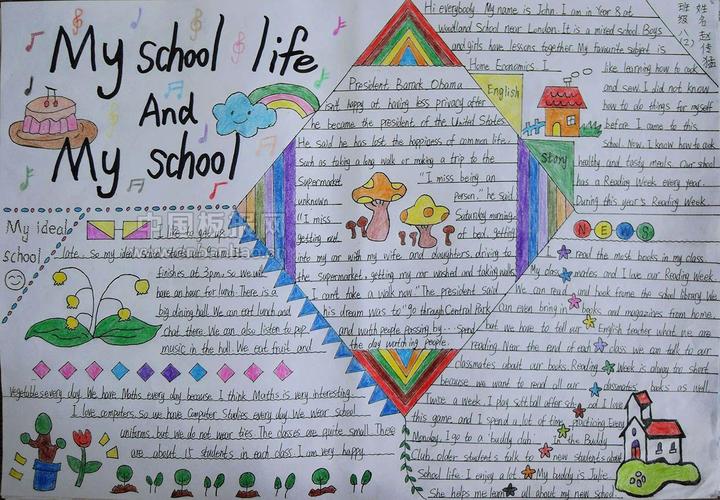 My school life
And
My school
My ideal
school
I like to get up
late. so my ideal school starts
finishes at 3pm, so we
have an hour for lunch. There is a
big dining hall. We can eat lunch and
chat there. We can also listen to pop
music in the hall. We eat fruit and
vegetables every day. We have Maths every day because I think Maths is very interesting.
I love computers, so we have Computer Studies every day. We wear school
uniforms but we do not wear ties. The classes are quite small. There
are about 15 students in each class. I am very happy.
President Barak Obama
isnt happy at having less privacy after
he became the president of the United States.
He said he has lost the happiness of common life
such as taking a long walk or making a trip to the
Supermarket.
"I miss being an
unknown
person," he said.
"I miss
Saturday morning-
getting out
at bed. getting
into my car with my wife and daughters, driving to
the supermarket, getting my car washed and taking walks.
I can't take a walk now." The president said
his dream was to "go through Central Park
and watch people passing by - spend
the day watching people.
English
Story
Hi everybody. My name is John. I am in Year 8 at
Woodland School near London. It is a mixed school. Boys
and girls have lessons together. My favourite subject is
Home Economics. I
like learning how to cook
and sew. I did not know
how to do things for myself
before I came to this
school. Now, I know how to cook
healthy and tasty meals. Our school
has a Reading Week every year.
During this year's Reading Week
NEWS
I read the most books in my class.
My classmates and I love our Reading Week.
We can read and book from the school library. We
can even bring in books and magazines from home
but we have to tell our English teacher what we are
reading. Near the end of each class we can talk to our
classmates about our books. Reading Week is always too short
because we want to read all our classmates' books as well.
Twice a week, I play softball after school. I love
this game and I spend a lot of time practicing. Every
Monday, I go to a 'buddy club'. In the Buddy
Club, older students talk to new students about
School life. I enjoy a lot. My buddy is Julie.
She helps me learn all about my new School
姓名 赵传猛
班级 八(2)
中国板报网